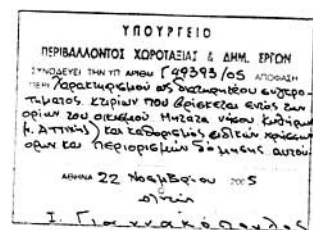 ΥΠΟΥΡΓΕΙΟ
ΠΕΡΙΒΑΛΛΟΝΤΟΣ ΧΩΡΟΤΑΞΙΑΣ & ΔΗΜ. ΕΡΓΩΝ
ΣΥΝΟΔΕΥΕΙ ΤΗΝ ΥΠ ΑΡΙΘΜ Γ49393/05 ΑΠΟΦΑΣΗ
ΠΕΡΙ Χαρακτηρισμού ως διατηρητέου συγκρο-
τήματος κτιρίων που βρίσκεται εντός των
ορίων του οικισμού Μητάτα νήσου Κυθήρων
(ν. Αττικής) και καθορισμός ειδικών χρήσεων
όρων και περιορισμών δόμησης αυτού
ΑΘΗΝΑ 22 Νοεμβρίου 2005
Ι. Γιαννακόπουλος